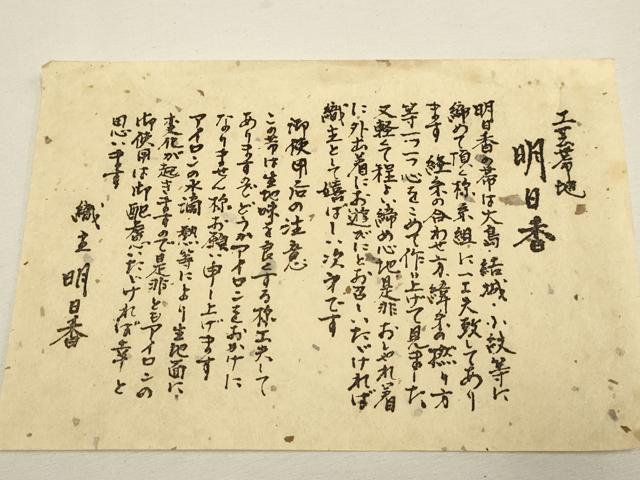 工芸帯地
明日香
明日香の帯は大島 結城 小紋等に
締めて頂く様糸組に一工夫致してあり
ます 経糸の合わせ方 緯糸の撚り方
等一つ一つ心をこめて作り上げて見ました、
又軽くて程よい締め心地是非おしゃれ着
に外出着にお遊びにとお召しいただければ
織主として嬉ばしい次才です
御使用后の注意
この帯は生地味を良くする様工夫して
ありますのでどうかアイロンをおかけに
なりません様お願い申し上げます
アイロンの水滴 熱等により生地面に
変化が起きますので是非ともアイロンの
御使用は御配慮いただければ幸と
思います
織主 明日香